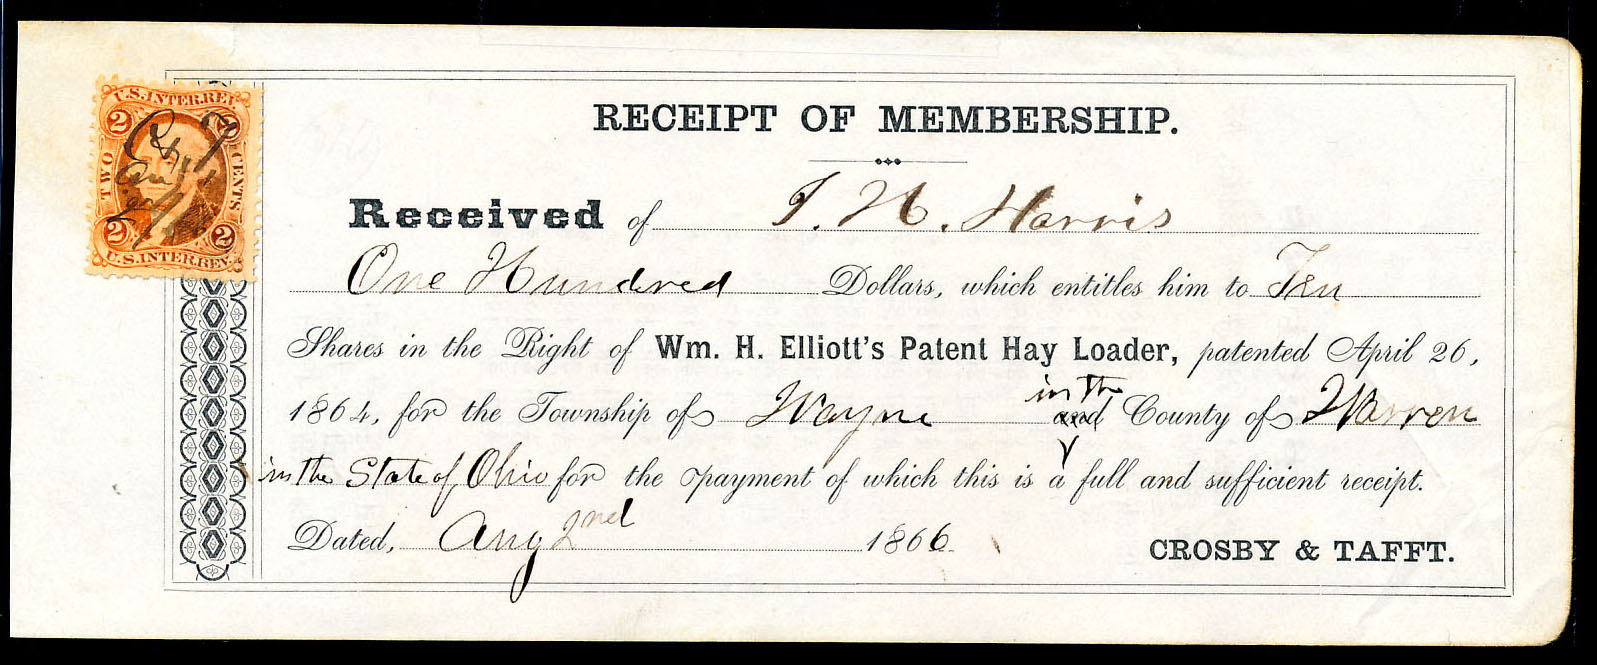 RECEIPT OF MEMBERSHIP.
U.S. INTER. REV.
2
TWO CENTS
2 2
U.S. INTER. REV.
Received of T. H. Harris
One Hundred Dollars, which entitles him to Ten
Shares in the Right of Wm. H. Elliott's Patent Hay Loader, patented April 26,
in the
1864, for the Township of Wayne and County of Warren
in the State of Ohio for the payment of which this is a full and sufficient receipt.
Dated, Aug 2nd 1866
CROSBY & TAFFT.